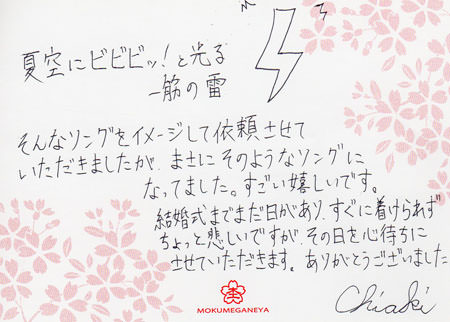 夏空にビビビッ！と光る
一筋の雷
そんなリングをイメージして依頼させて
いただきましたが、まさにそのようなリングに
なってました。すごい嬉しいです。
結婚式までまだ日があり、すぐに着けられず
ちょっと悲しいですが、その日を心待ちに
させていただきます。ありがとうございました
Chiaki
MOKUMEGANEYA